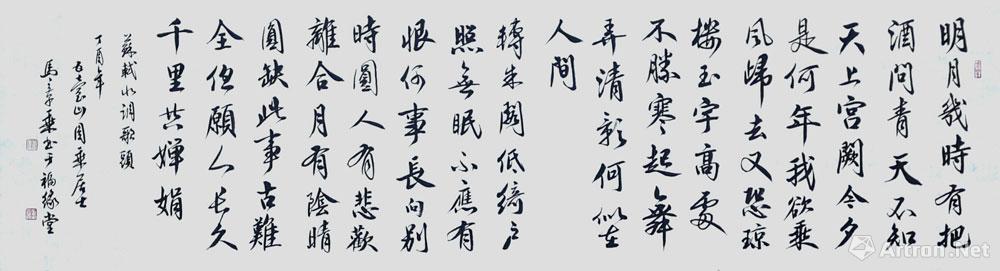 明月幾時有把
酒問青天不知
天上宫闕今夕
是何年我欲乘
風歸去又恐琼
楼玉宇高處
不勝寒起舞
弄清影何似在
人間
轉朱閣低綺户
照無眠不應有
恨何事長向别
時圓人有悲歡
離合月有陰晴
圓缺此事古難
全但願人長久
千里共嬋娟
蘇軾水调歌頭
丁酉年
山居士
馬乘書于福緣堂
Artron.Net